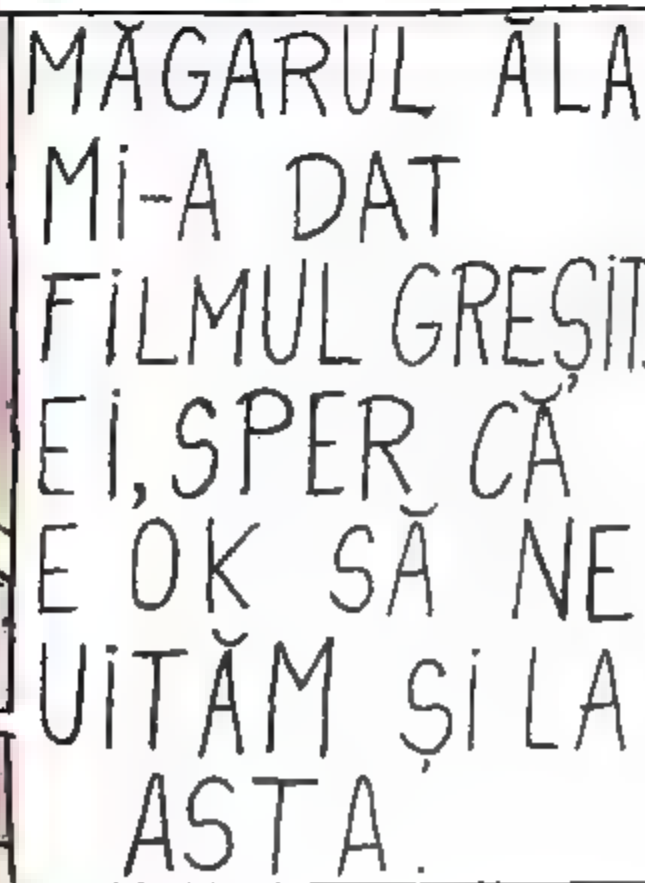 MĂGARUL ĂLA
Mi-A DAT
FiLMUL GREȘiT.
Ei, SPER CĂ
E OK SĂ NE
UiTĂM Și LA
ASTA.